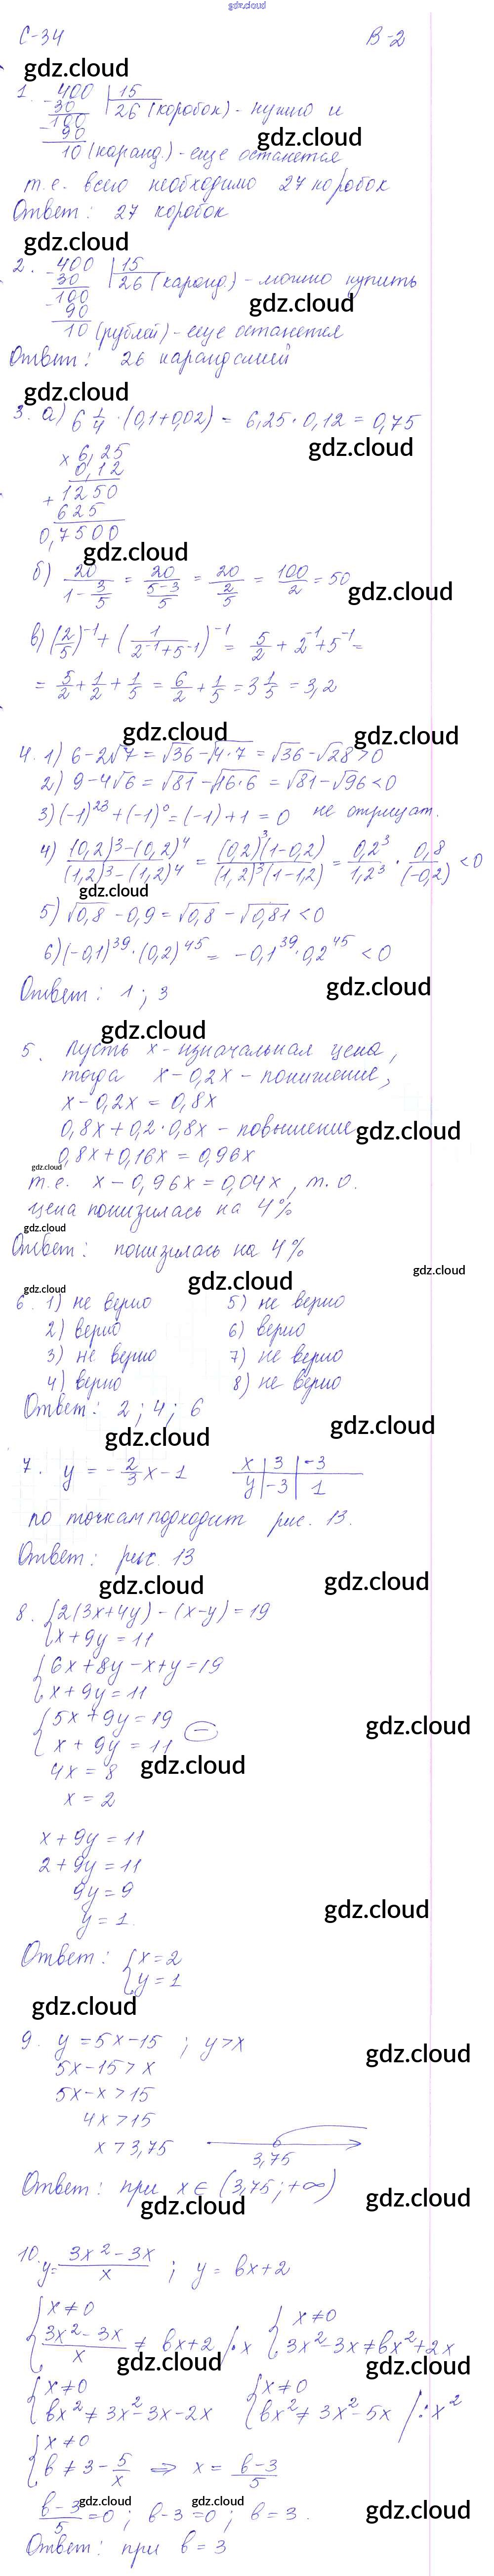 gdz.cloud
С-34 В-2
gdz.cloud
1. 400 | 15
- 30 26 (коробок) - нужно и
100
- 90 gdz.cloud
10 (каранд.) - еще останется
т.е. всего необходимо 27 коробок
Ответ: 27 коробок
gdz.cloud
2. 400 | 15
- 30 26 (каранд.) - можно купить
100 gdz.cloud
- 90
10 (рублей) - еще останется
Ответ: 26 карандашей
gdz.cloud
3. а) 6 1/4 · (0,1+0,02) = 6,25 · 0,12 = 0,75
× 6,25 gdz.cloud
0,12
+ 1250
625
0,7500
gdz.cloud
б) 20/(1 - 3/5) = 20/((5-3)/5) = 20/(2/5) = 100/2 = 50
gdz.cloud
в) (2/5)^-1 + (1/(2^-1+5^-1))^-1 = 5/2 + 2^-1 + 5^-1 =
= 5/2 + 1/2 + 1/5 = 6/2 + 1/5 = 3 1/5 = 3,2
gdz.cloud gdz.cloud
4. 1) 6-2√7 = √36 - √4·7 = √36 - √28 > 0
2) 9-4√6 = √81 - √16·6 = √81 - √96 < 0
3) (-1)^23 + (-1)^0 = (-1) + 1 = 0 не отрицат.
4) ((0,2)^3 - (0,2)^4)/((1,2)^3 - (1,2)^4) = ((0,2)^3(1-0,2))/((1,2)^3(1-1,2)) = 0,2^3/1,2^3 · 0,8/(-0,2) < 0
gdz.cloud
5) √0,8 - 0,9 = √0,8 - √0,81 < 0
6) (-0,1)^39 · (0,2)^45 = -0,1^39 · 0,2^45 < 0
Ответ: 1; 3 gdz.cloud
gdz.cloud
5. Пусть х - изначальная цена,
тогда х - 0,2х - понижение,
х - 0,2х = 0,8х
0,8х + 0,2·0,8х - повышение gdz.cloud
0,8х + 0,16х = 0,96х
gdz.cloud
т.е. х - 0,96х = 0,04х, т.о.
цена понизилась на 4%
gdz.cloud
Ответ: понизилась на 4%
gdz.cloud
gdz.cloud gdz.cloud
6. 1) не верно 5) не верно
2) верно 6) верно
3) не верно 7) не верно
4) верно 8) не верно
Ответ: 2; 4; 6
gdz.cloud gdz.cloud
7. y = -2/3 x - 1 x | 3 | -3
y | -3 | 1
по точкам подходит рис. 13.
Ответ: рис. 13
gdz.cloud gdz.cloud
8. { 2(3x+4y) - (x-y) = 19
x + 9y = 11
{ 6x + 8y - x + y = 19
x + 9y = 11
{ 5x + 9y = 19
x + 9y = 11 (-) gdz.cloud
4x = 8 gdz.cloud
x = 2
x + 9y = 11
2 + 9y = 11
9y = 9 gdz.cloud
y = 1.
Ответ: { x = 2
y = 1
gdz.cloud
9. y = 5x - 15 ; y > x gdz.cloud
5x - 15 > x
5x - x > 15
4x > 15
x > 3,75
3,75
Ответ: при x ∈ (3,75; +∞) gdz.cloud
gdz.cloud
10. y = (3x^2 - 3x)/x ; y = bx + 2
{ x ≠ 0 { x ≠ 0
(3x^2 - 3x)/x ≠ bx + 2 | · x 3x^2 - 3x ≠ bx^2 + 2x
gdz.cloud gdz.cloud
{ x ≠ 0 { x ≠ 0
bx^2 ≠ 3x^2 - 3x - 2x bx^2 ≠ 3x^2 - 5x | : x^2
{ x ≠ 0
b ≠ 3 - 5/x ⇒ x = (b-3)/5
gdz.cloud gdz.cloud gdz.cloud
(b-3)/5 = 0 ; b - 3 = 0 ; b = 3.
Ответ: при b = 3